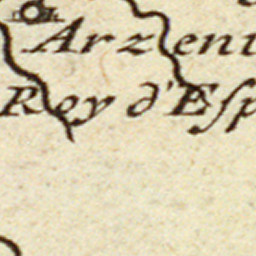 Arzeni
Rey d'Esp